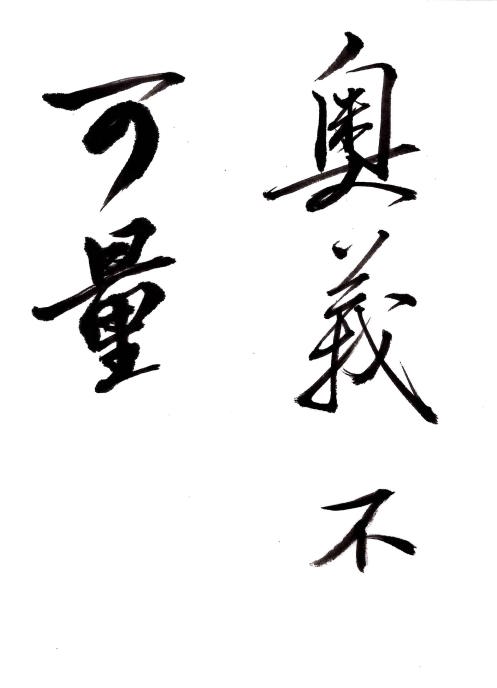 奥義不
可量